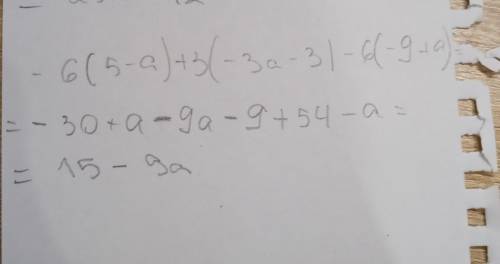 - 6(5-a)+3(-3a-3)-6(-9+a)=
=-30+a-9a-9+54-a=
= 15-9a